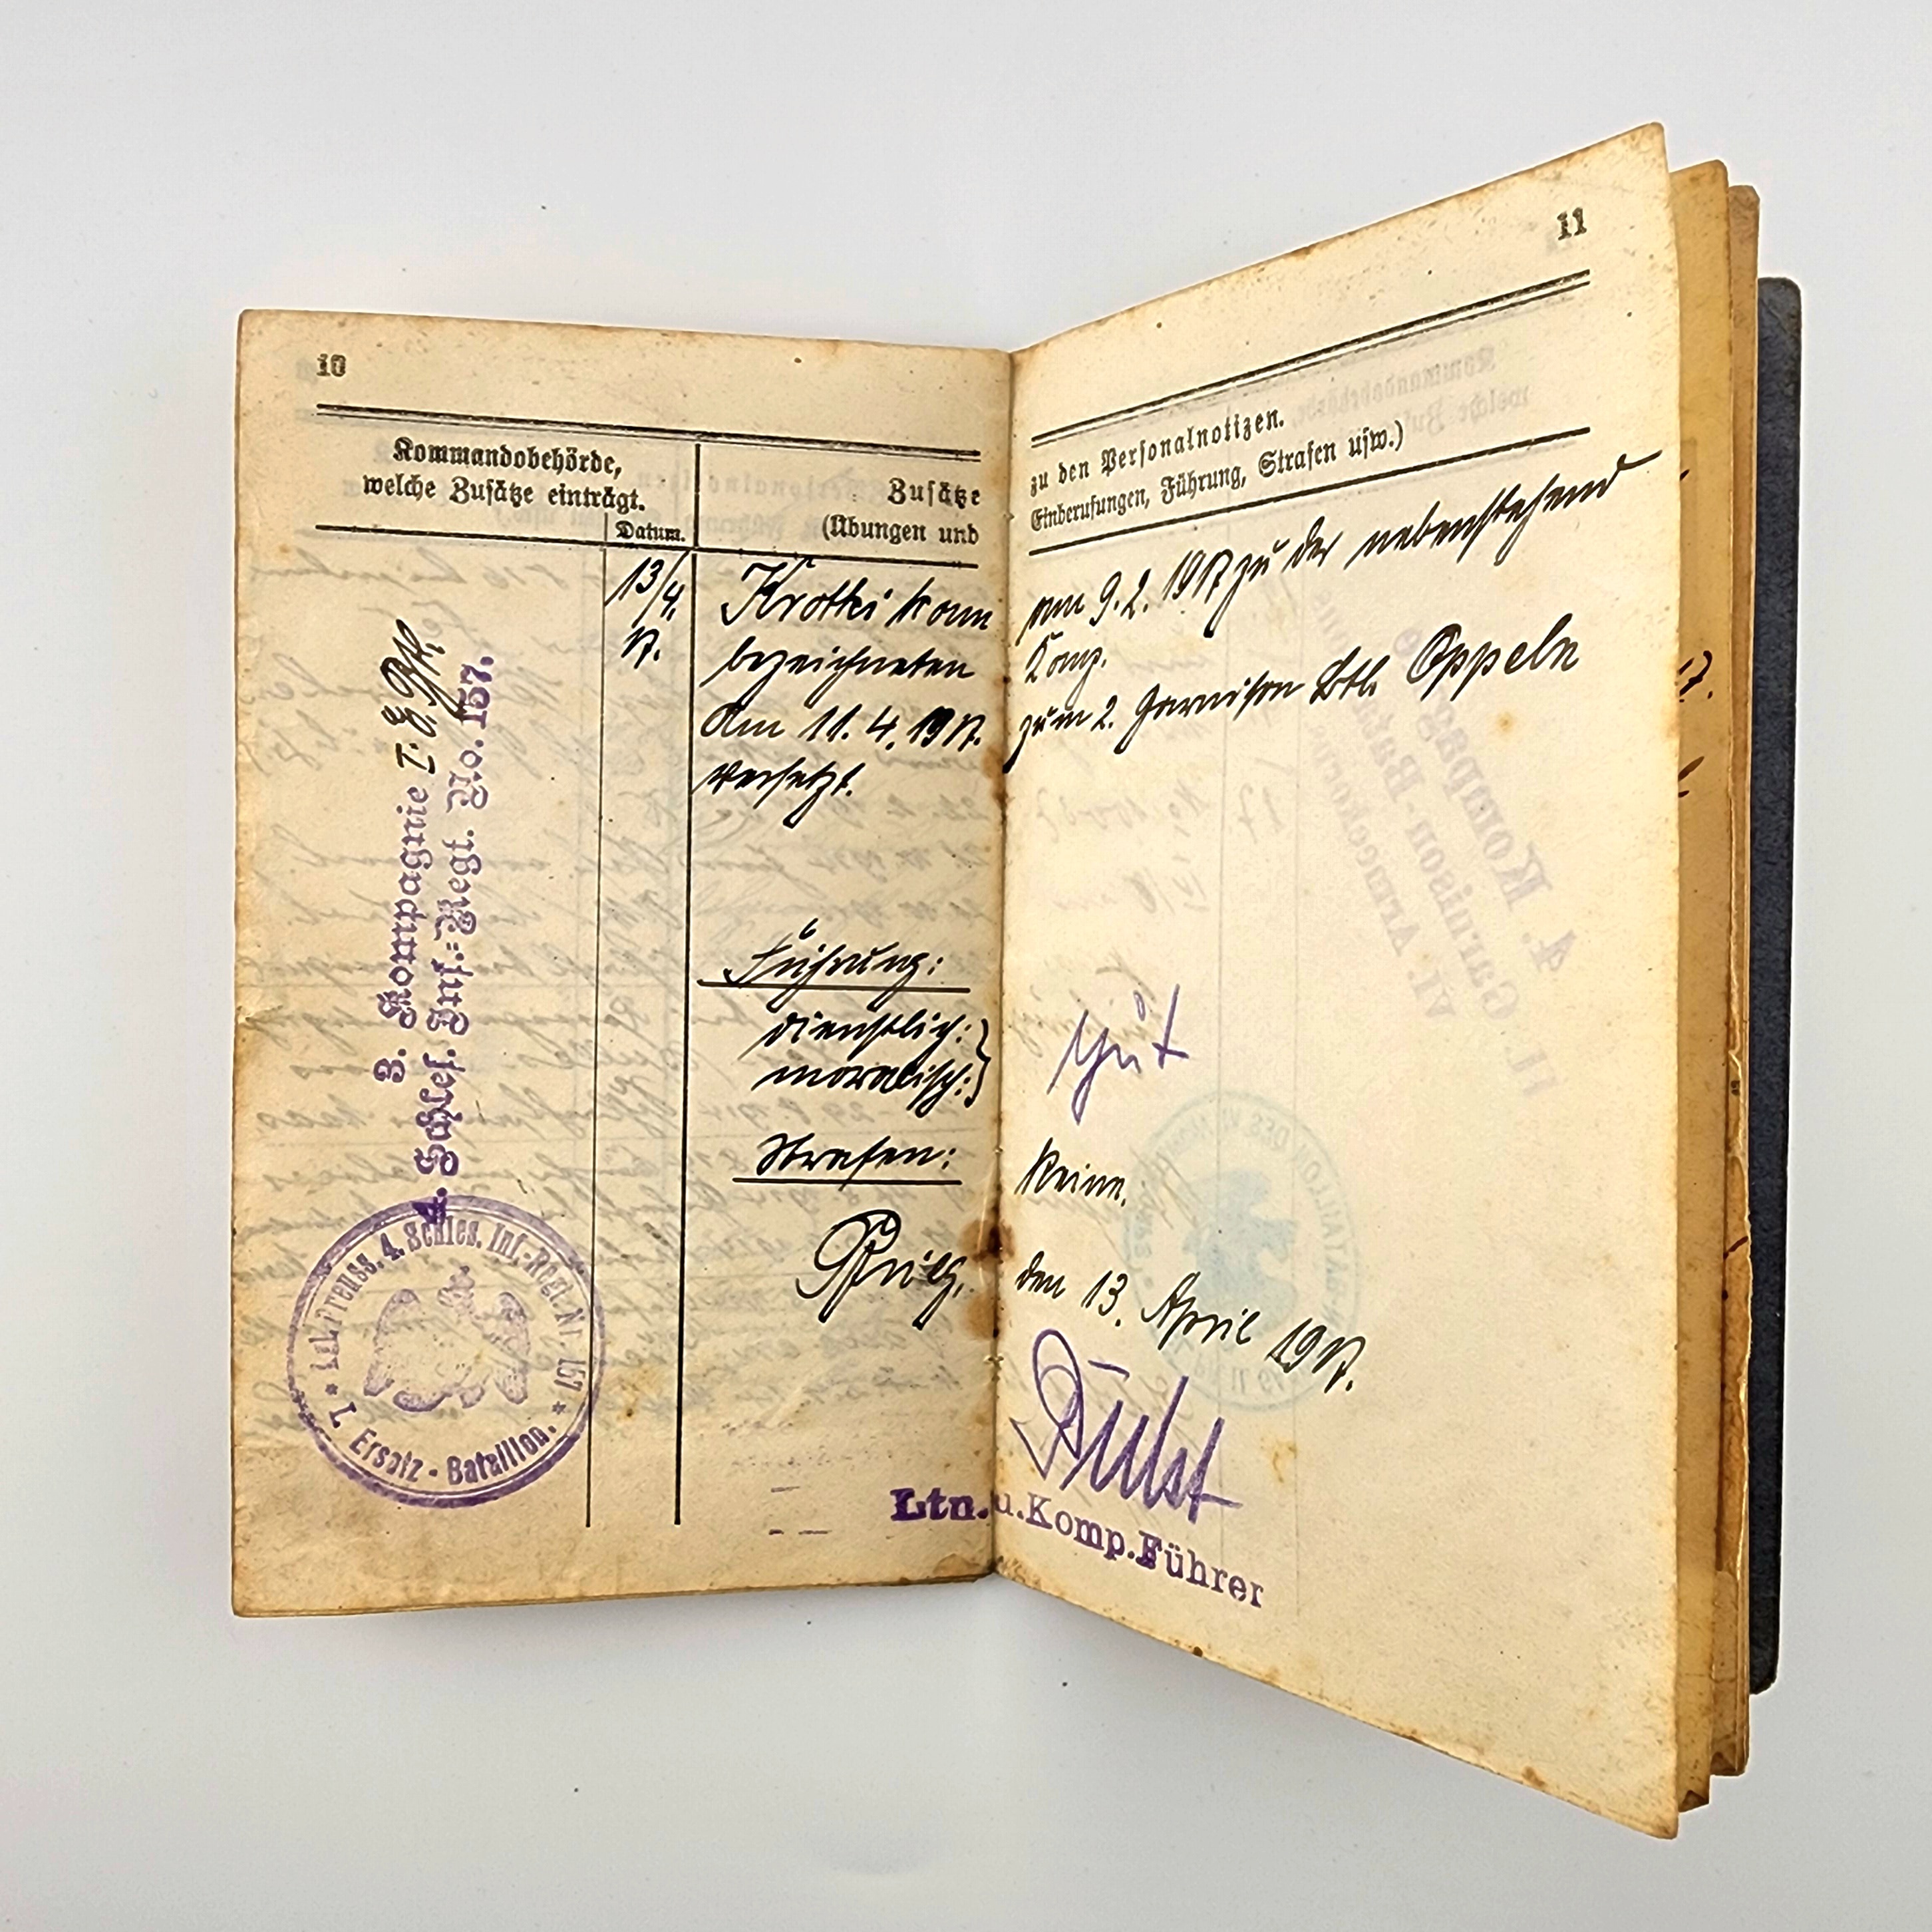 10
Kommandobehörde,
welche Zusätze einträgt.
Datum.
Zusätze
(Übungen und
3. Kompagnie I. E.
4. Schles. Inf.-Regt. No. 157.
13/4.
17.
Krotki kam
bezeichneten
Am 11. 4. 1917.
versetzt.
Führung:
dienstlich:
moralisch:
Strafen:
Brieg,
Preuss. 4. Schles. Inf.-Regt. Nr. 157
I. Ersatz-Bataillon.
11
zu den Personalnotizen.
Einberufungen, Führung, Strafen usw.)
am 9. 2. 1917 zu der nebenstehend
Komp.
zum 2. Garnison Btl. Oppeln
gut
Keine.
den 13. April 1917.
Ltn. u. Komp. Führer
4. Kompag
Garnison-Bata
VI. Armeekor